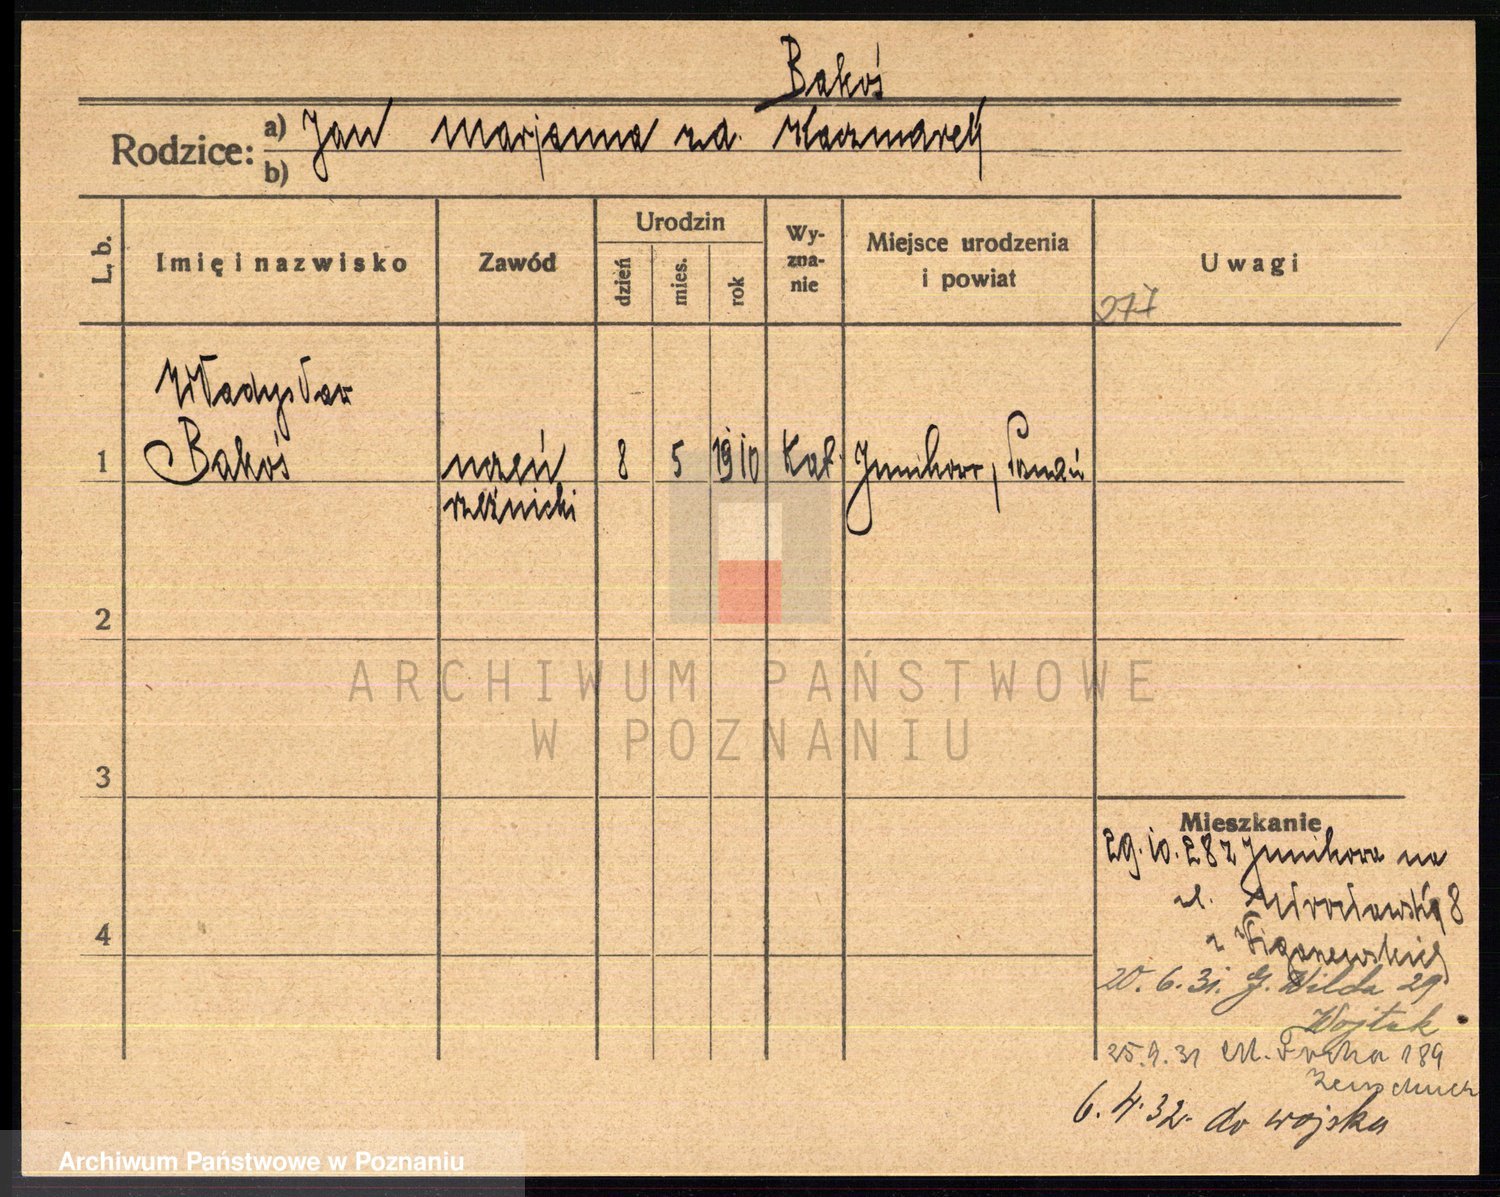 Bakoś
Rodzice: a) Jan Marjanna zd. Kaczmarek
b)
L. b.
Imię i nazwisko
Zawód
Urodzin
dzień
mies.
rok
Wy-
zna-
nie
Miejsce urodzenia
i powiat
Uwagi
277
Władysław
1 Bakoś uczeń 8 5 1910 Kat. Junikowo, Poznań
rzeźnicki
2
3
4
ARCHIWUM PAŃSTWOWE
W POZNANIU
Mieszkanie
29.10.28 z Junikowa na
ul. 8
z
20.6.31. G. Wilda 29
Wojtak
25.9.31 M. Focha 189
6.4.32. do wojska
Archiwum Państwowe w Poznaniu